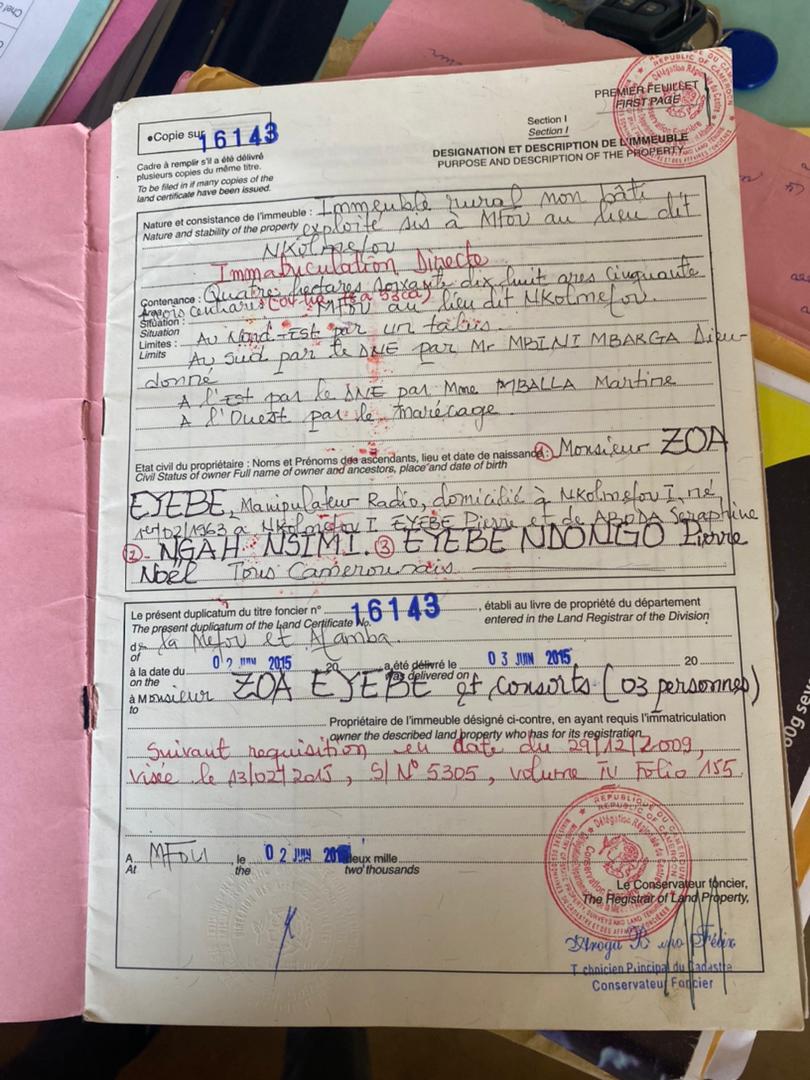 PREMIER FEUILLET
FIRST PAGE
•Copie sur 16143
Section I
Section I
DESIGNATION ET DESCRIPTION DE L'IMMEUBLE
PURPOSE AND DESCRIPTION OF THE PROPERTY
Cadre à remplir s'il a été délivré
plusieurs copies du même titre.
To be filed in if many copies of the
land certificate have been issued.
Nature et consistance de l'immeuble : Immeuble rural non bâti
Nature and stability of the property exploité sis à Mfou au lieu dit
NKolmefou
Immatriculation Directe
Contenance : Quatre hectares soixante dix huit ares cinquante
trois centiares (04 ha 78 a 53ca)
Situation : Mfou au lieu dit NKolmefou.
Situation
Limites : Au Nord-Est par un talus.
Limits Au Sud par le DNE par Mr MBINI MBARGA Dieu-
donné
A l'Est par le DNE par Mme MBALLA Martine
A l'Ouest par le marécage.
Etat civil du propriétaire : Noms et Prénoms des ascendants, lieu et date de naissance : ① Monsieur ZOA
Civil Status of owner Full name of owner and ancestors, place and date of birth
EYEBE, Manipulateur Radio, domicilié à NKolmefou I, né
/02/1963 à NKolmefou I EYEBE Pierre et de ABODA Seraphine
②- NGAH NSIMI. ③ EYEBE NDONGO Pierre
Noël Tous Camerounais
Le présent duplicatum du titre foncier n° 16143, établi au livre de propriété du département
The present duplicatum of the Land Certificate No. entered in the Land Registrar of the Division
de la Mefou et Afamba.
of
à la date du 02 JUIN 2015 20 a été délivré le 03 JUIN 2015 20
on the was delivered on
à Monsieur ZOA EYEBE et consorts (03 personnes)
to
Propriétaire de l'immeuble désigné ci-contre, en ayant requis l'immatriculation
owner the described land property who has for its registration.
Suivant requisition en date du 29/12/2009,
visée le 13/02/2015, S/N° 5305, volume IV Folio 155
A MFou, le 02 JUIN 201 deux mille
At the two thousands
Le Conservateur foncier,
The Registrar of Land Property,
Technicien Principal du Cadastre
Conservateur Foncier